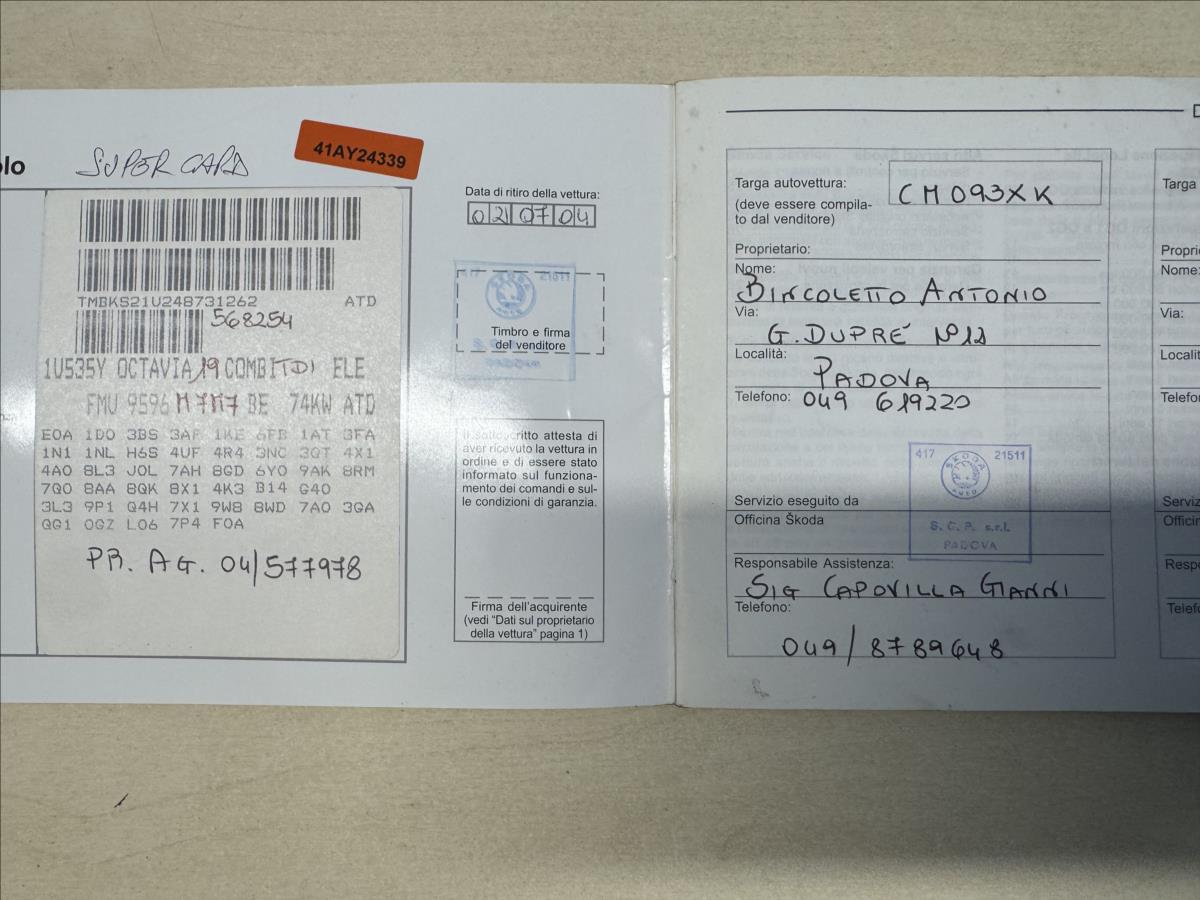 olo
SUPER CARD
41AY24339
TMBKS21U248731262 ATD
568254
1U535Y OCTAVIA 19 COMBI TDI ELE
FMU 9596 M7M7 BE 74KW ATD
E0A 1D0 3BS 3AF 1KE 6FB 1AT 3FA
1N1 1NL H6S 4UF 4R4 3NC 3QT 4X1
4A0 8L3 J0L 7AH 8GD 6Y0 9AK 8RM
7Q0 8AA 8QK 8X1 4K3 B14 G40
3L3 9P1 Q4H 7X1 9W8 8WD 7A0 3GA
QG1 0GZ L06 7P4 F0A
PR. AG. 04/577978
Data di ritiro della vettura:
02 07 04
417 21511
ŠKODA
AUTO
Timbro e firma
del venditore
Il sottoscritto attesta di
aver ricevuto la vettura in
ordine e di essere stato
informato sul funziona-
mento dei comandi e sul-
le condizioni di garanzia.
Firma dell'acquirente
(vedi "Dati sul proprietario
della vettura" pagina 1)
D
Targa autovettura:
CM093XK
(deve essere compila-
to dal venditore)
Proprietario:
Nome:
BINCOLETTO ANTONIO
Via:
G. DUPRÉ N°12
Località:
PADOVA
Telefono: 049 619220
417 21511
ŠKODA
AUTO
S.C.P. s.r.l.
PADOVA
Servizio eseguito da
Officina Škoda
Responsabile Assistenza:
SIG CAPOVILLA GIANNI
Telefono:
049/8789648
Targa
Propri
Nome:
Via:
Localit
Telefor
Serviz
Officir
Respo
Telefo